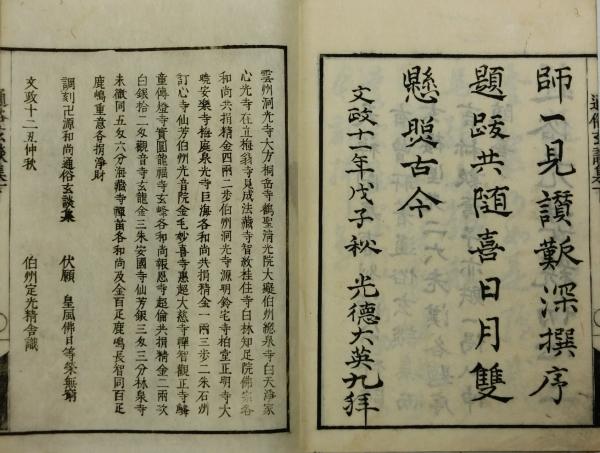 師一見讃歎深撰序
題跋共随喜日月雙
懸照古今
文政十一年戊子秋 光德大英九拜
雲州洞光寺大方桐岳寺觀聖清光院大癡伯州總泉寺白天淨家
心光寺在立梅翁寺見成法藏寺智敎桂住寺白林知足院佛宗各
和尚共捐精金四兩二步伯州洞光寺源明鈴宅寺柏堂正明寺大
曉安樂寺梅庭泉光寺巨海各和尚共捐精金一兩三步二朱石州
訂心寺仙芳伯州光音院金毛妙喜寺惠超大慈寺禪智觀正寺
童傳燈寺實圓龍福寺玄馨各和尚報恩寺超倫共捐精金二兩次
白銀拾二匁觀音寺玄龍金三朱安國寺仙芳銀三匁三分林泉寺
未徹同五匁六分海藏寺禪苗各和尚及金百疋鹿嶋長智同百疋
鹿嶋重意各捐淨財
調刻卍源和尚通俗玄談集 伏願 皇風佛日等榮無窮
文政十二丑仲秋 伯州定光精舍識
通俗玄談集